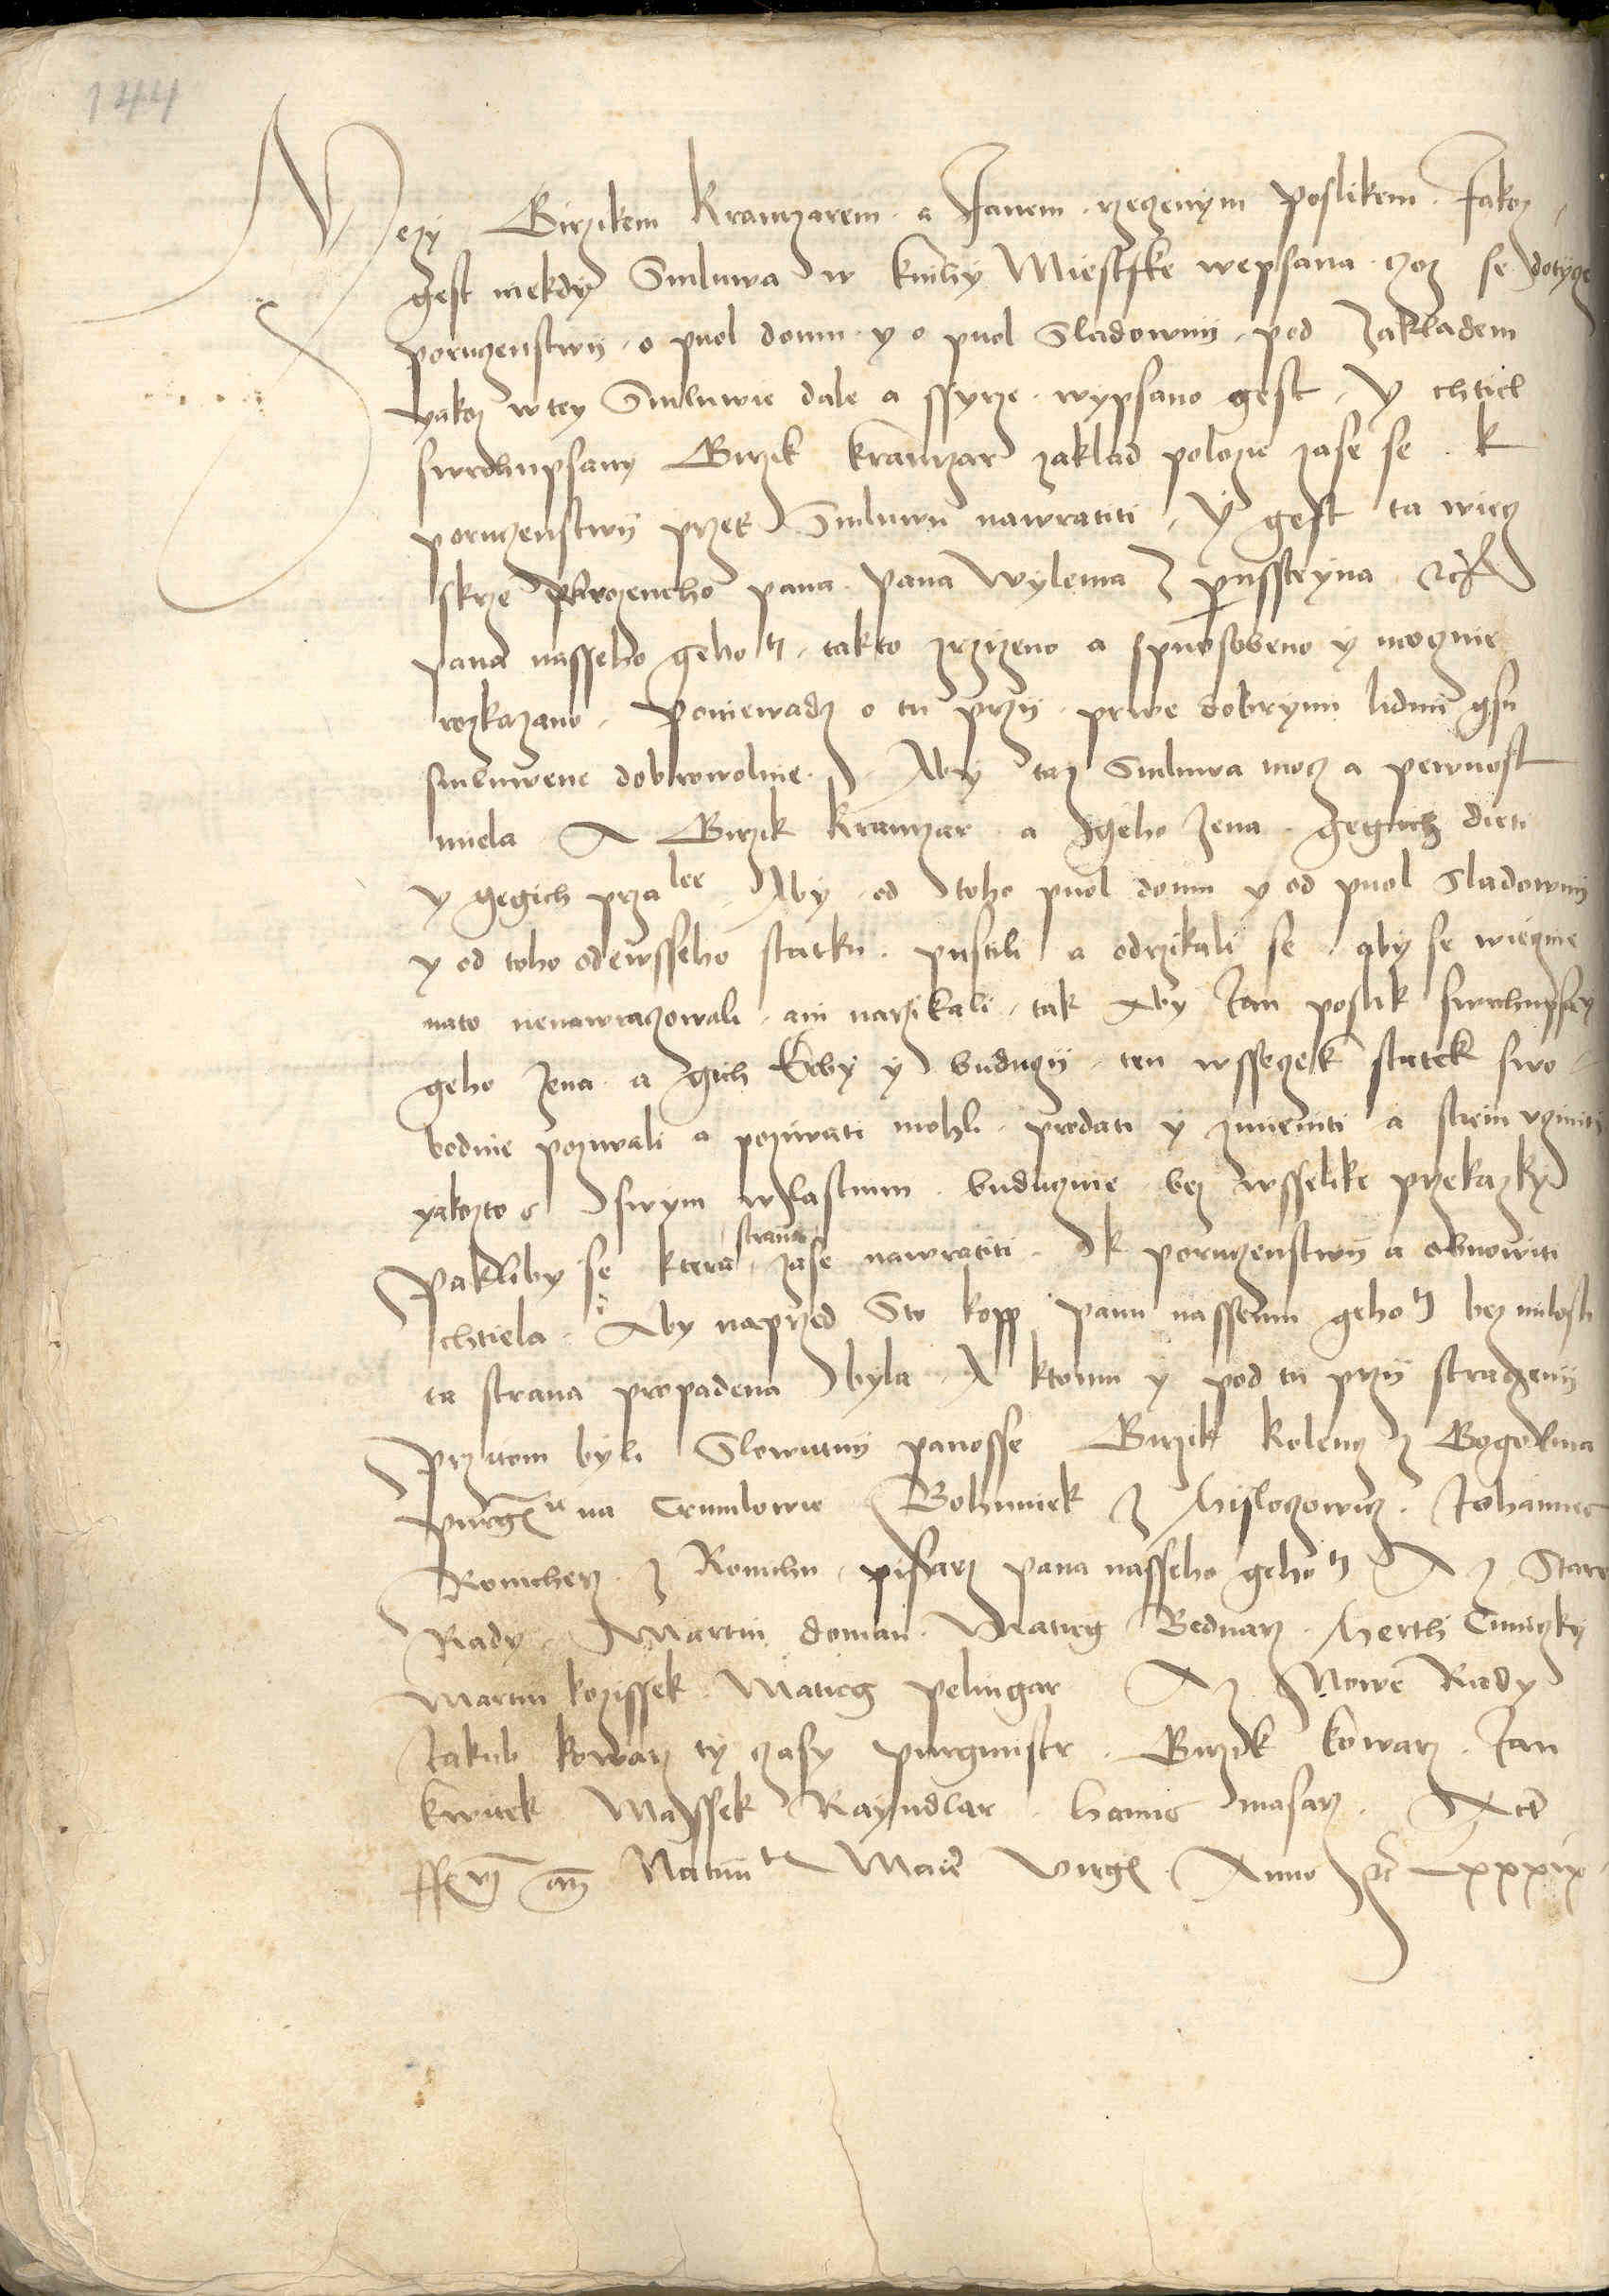 144
Mezy Girzikem Kramarzem · a Janem · rzeczenym Poslikem · Jakoz
gest niekdy Smluwa w knihy Miestske wepsana · czoz se dotycze
poruczenstwij · o puol domu · y o puol Sladownij · pod Zakladem
yakoz w tey Smluwie dale a ssyrze · wypsano gest · Y chtiel
swrchupsany Girzik kramarzar zaklad polozie zase se · k
poruczenstwij przes Smluwu nawratiti · Y gest ta wiecz
skrze Urozeneho pana · pana Wylema z pernssteyna · etc
pana nasseho geho mti · takto zrzizeno a spuosobeno y mocznie
rozkazano · Poniewadz o tu przij · prwe dobrymi lidmi gsu
smluweni dobrowolnie · Aby taz Smluwa mocz a pewnost
miela · A Girzik Kramarzar · a geho Zena · gegich dieti
y gegich przatelee · Aby · od toho puol domu y od puol Sladownij
y od toho odewsseho statku · pustili a odrziekali se · aby se wiecznie
nato nenawraczowali · ani narziekali · tak Aby Jan poslik swrchupsany
geho Zena · a gich Erby y buduczij · ten wsseczek statek swo-
bodnie pozywali a pozywati mohli · prodati y zmieniti a s tiem vcziniti
yakozto s swym wlastnim · buducznie · bez wsselike przekazky
Pakliby se ktera strana zase nawratiti · k poruczenstwij a obnowiti
chtiela · Aby naprzed Sto kopp panu nassemu geho mti bez milosti
ta strana propadena byla · A ktomu y pod tu przij straczenij
Przitom byli Slowutnij panosse Girzik Kolencz z Bogowina
purgkrabie na Crumlowie Bohuniek z Hislozowicz · Johannes
Romcherz · z Romchu · pisarz pana nasseho geho mti A z Stare
Rady · Martin doman · Matieg Bednarz · Herth Cuniczky
Martin kozissek · Matieg pelingar A z Nowe Rady
Jakub kowarz ty czasy purgmistr · Girzik kowarz · Jan
kwitek Massek Rayndlar · hannis masarz · Actum
ffer vj an Natiuitatem Marie Virgis · Anno etc Lxxxix